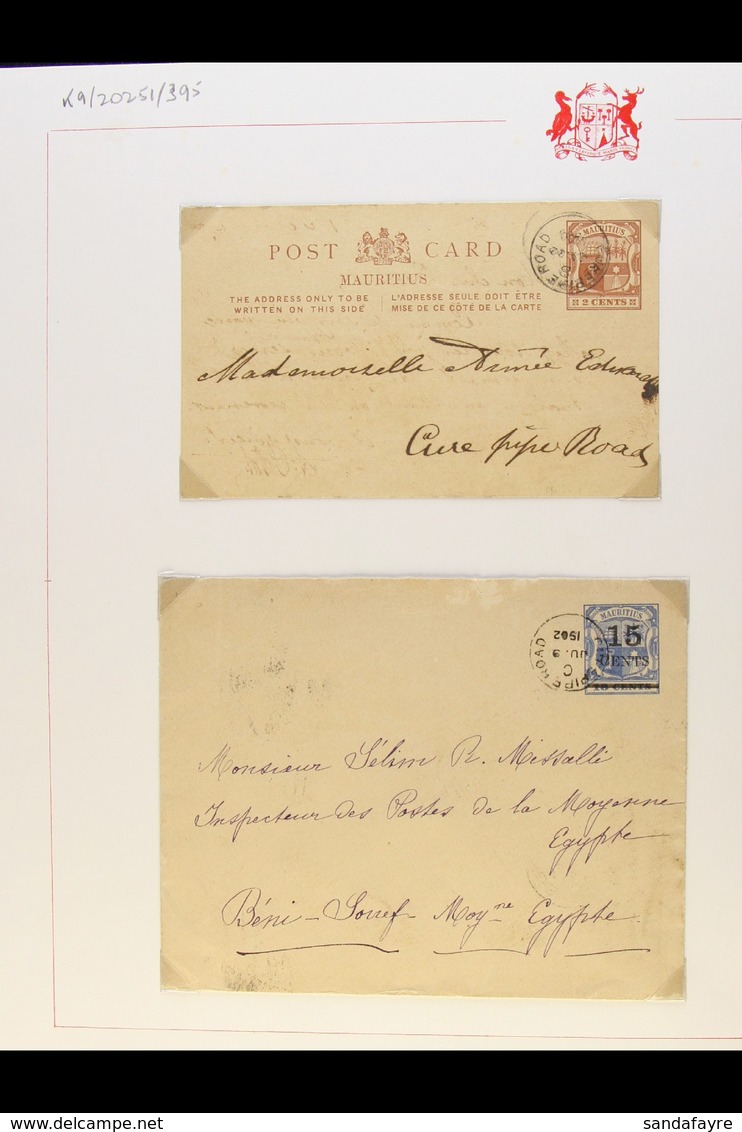 K9/20251/395
POST CARD
MAURITIUS
THE ADDRESS ONLY TO BE
WRITTEN ON THIS SIDE
L'ADRESSE SEULE DOIT ÊTRE
MISE DE CE CÔTÉ DE LA CARTE
MAURITIUS
2 CENTS
Mademoiselle Aimée Edwards
Cure pipe Road
MAURITIUS
15
CENTS
18 CENTS
EPIPE ROAD
C
JU 9
1902
Monsieur Sélim R. Missalli
Inspecteur des Postes de la Moyenne
Egypte
Béni-Souef-Moyne Egypte
delcampe.net
sandafayre